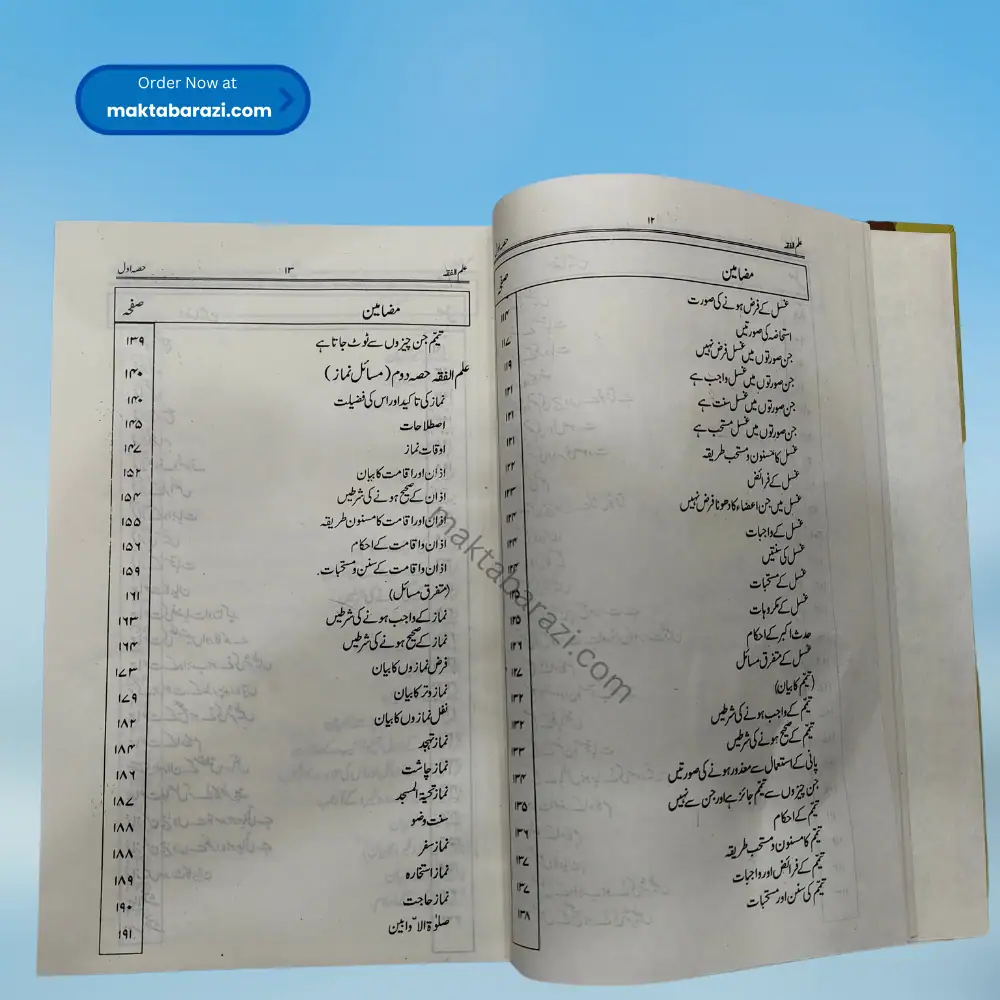 Order Now at
maktabarazi.com
علم الفقہ ۱۲
مضامین صفحہ
غسل کے فرض ہونے کی صورت ۱۱۴
استحاضہ کی صورتیں ۱۱۷
جن صورتوں میں غسل فرض نہیں ۱۱۹
جن صورتوں میں غسل واجب ہے ۱۲۱
جن صورتوں میں غسل سنت ہے ۱۲۱
جن صورتوں میں غسل مستحب ہے ۱۲۱
غسل کا مسنون و مستحب طریقہ ۱۲۲
غسل کے فرائض ۱۲۳
غسل میں جن اعضاء کا دھونا فرض نہیں ۱۲۳
غسل کے واجبات ۱۲۳
غسل کی سنتیں
غسل کے مستحبات
غسل کے مکروہات ۱۲۵
حدث اکبر کے احکام ۱۲۶
غسل کے متفرق مسائل ۱۲۷
(تیمّم کا بیان) ۱۳۲
تیمّم کے واجب ہونے کی شرطیں ۱۳۲
تیمّم کے صحیح ہونے کی شرطیں ۱۳۳
پانی کے استعمال سے معذور ہونے کی صورتیں ۱۳۴
جن چیزوں سے تیمّم جائز ہے اور جن سے نہیں ۱۳۵
تیمّم کے احکام ۱۳۶
تیمّم کا مسنون و مستحب طریقہ ۱۳۷
تیمّم کے فرائض اور واجبات ۱۳۷
تیمّم کی سنن اور مستحبات ۱۳۸
علم الفقہ ۱۳ حصہ اول
مضامین صفحہ
تیمّم جن چیزوں سے ٹوٹ جاتا ہے ۱۳۹
علم الفقہ حصہ دوم (مسائل نماز) ۱۴۰
نماز کی تاکید اور اس کی فضیلت ۱۴۰
اصطلاحات ۱۴۵
اوقات نماز ۱۴۷
اذان اور اقامت کا بیان ۱۵۲
اذان کے صحیح ہونے کی شرطیں ۱۵۴
اذان اور اقامت کا مسنون طریقہ ۱۵۵
اذان و اقامت کے احکام ۱۵۶
اذان و اقامت کے سنن و مستحبات. ۱۵۹
(متفرق مسائل) ۱۶۱
نماز کے واجب ہونے کی شرطیں ۱۶۳
نماز کے صحیح ہونے کی شرطیں ۱۶۴
فرض نمازوں کا بیان ۱۷۳
نماز وتر کا بیان ۱۷۹
نفل نمازوں کا بیان ۱۸۲
نماز تہجد ۱۸۴
نماز چاشت ۱۸۶
نماز تحیۃ المسجد ۱۸۷
سنت وضو ۱۸۸
نماز سفر ۱۸۸
نماز استخارہ ۱۸۹
نماز حاجت ۱۹۰
صلوٰۃ الاوّابین ۱۹۱
maktabarazi.com